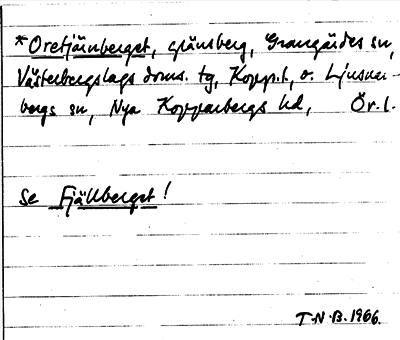 *Oretjärnberget, gränsberg, Grangärdes sn,
Västerbergslags doms. tg, Kopp. l., o. Ljusnar-
bergs sn, Nya Kopparbergs hd, Ör. l.
Se Fjällberget!
T.N.B. 1966.